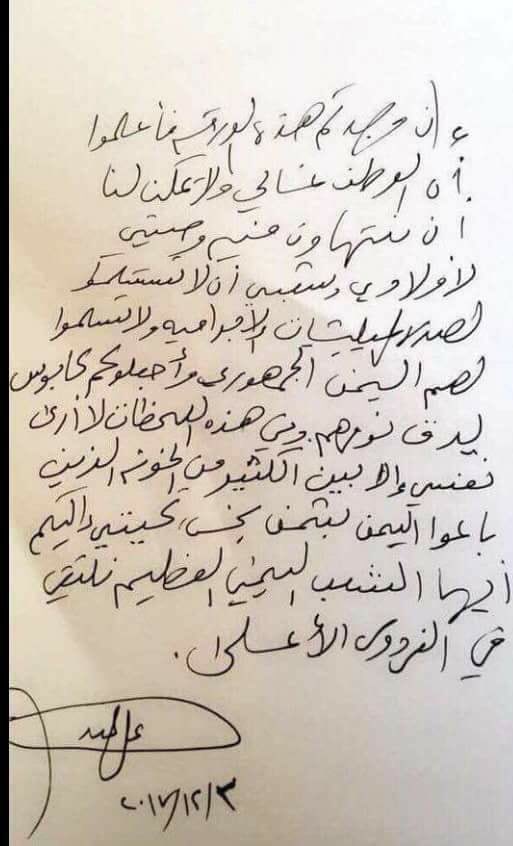 إن وجدتم هذه الورقة فأعلموا
أن الوطن غالي ولا يمكن لنا
أن نتهاون فيه وصيتي
لأولادي وشعبي أن لا تستسلموا
لهذه المليشيات الإجرامية ولا تسلموا
لهم اليمن الجمهوري وأجعلوكم كابوس
يدق نومهم وفي هذه اللحظات لا أرى
نفسي إلا بين الكثير من الخونة الذين
باعوا اليمن بثمن بخس تحيتي إليكم
أيها الشعب اليمني العظيم نلتقي
في الفردوس الأعلى.
٢٠١٧/١٢/٣